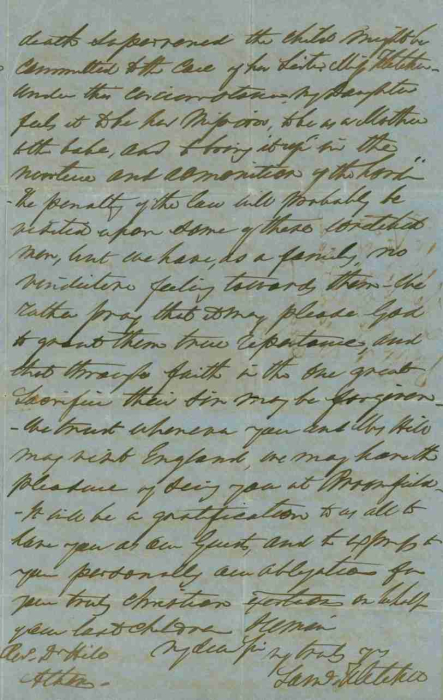 death supervened the child might be
committed to the care of her Sister Miss Fletcher -
under this circumstance, my daughter
feels it to be her Mission, to be as a Mother
to the babe, and to bring it up "in the
nurture and admonition of the Lord"
- The penalty of the law will probably be
visited upon some of these wretched
men, but we have, as a family, no
vindictive feeling towards them - We
rather pray that it may please God
to grant them true repentance, and
that through faith in the one great
Sacrifice their sin may be forgiven -
- We trust whenever you and Mrs Hill
may visit England, we may have the
pleasure of seeing you at Broomfield
- It will be a gratification to us all to
have you as our Guests, and to express to
you personally our obligation for
your truly Christian on behalf
your lost children I remain
My dear Sir very truly yrs
Revd. Dr Hill
Athens
Saml Fletcher